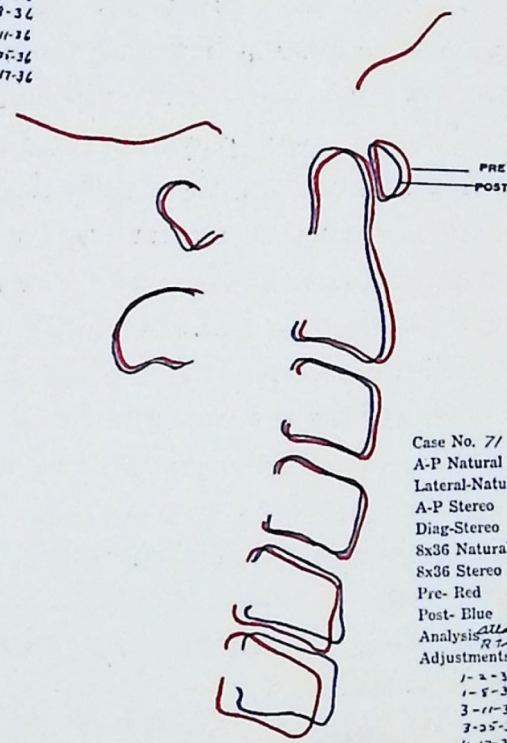 -36
11-36
25-36
17-36
PRE
POST
Case No. 71
A-P Natural
Lateral-Natu
A-P Stereo
Diag-Stereo
8x36 Natural
8x36 Stereo
Pre- Red
Post- Blue
Analysis
Adjustments
1-2-3
1-8-3
3-11-3
3-25-